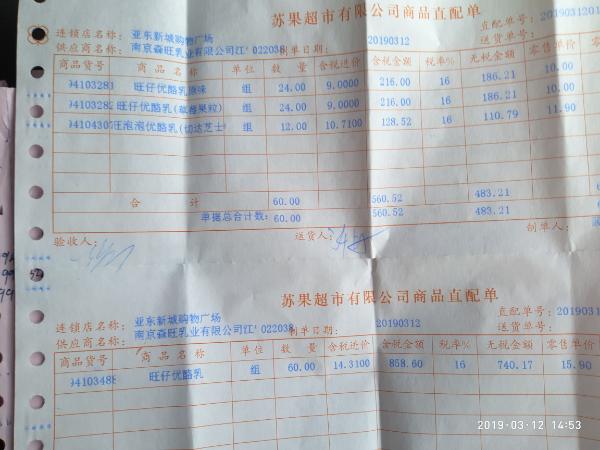 苏果超市有限公司商品直配单
连锁店名称: 亚东新城购物广场 直配单号: 2019031201
供应商名称: 南京森旺乳业有限公司江' 022038 制单日期: 20190312 送货单号:
商品货号 商品名称 单位 数量 含税进价 含税金额 税率% 无税金额 零售单价
9410328 旺仔优酪乳原味 组 24.00 9.0000 216.00 16 186.21 10.00
9410328 旺仔优酪乳(草莓果粒) 组 24.00 9.0000 216.00 16 186.21 10.00
9410430 旺泡泡优酪乳(切达芝士 组 12.00 10.7100 128.52 16 110.79 11.90
合计 60.00 560.52 483.21
单据总合计数: 60.00 560.52 483.21
验收人: 送货人: 制单人:
苏果超市有限公司商品直配单
连锁店名称: 亚东新城购物广场 直配单号: 20190312
供应商名称: 南京森旺乳业有限公司江' 022038 制单日期: 20190312 送货单号:
商品货号 商品名称 单位 数量 含税进价 含税金额 税率% 无税金额 零售单价
9410348 旺仔优酪乳 组 60.00 14.3100 858.60 16 740.17 15.90
2019-03-12 14:53